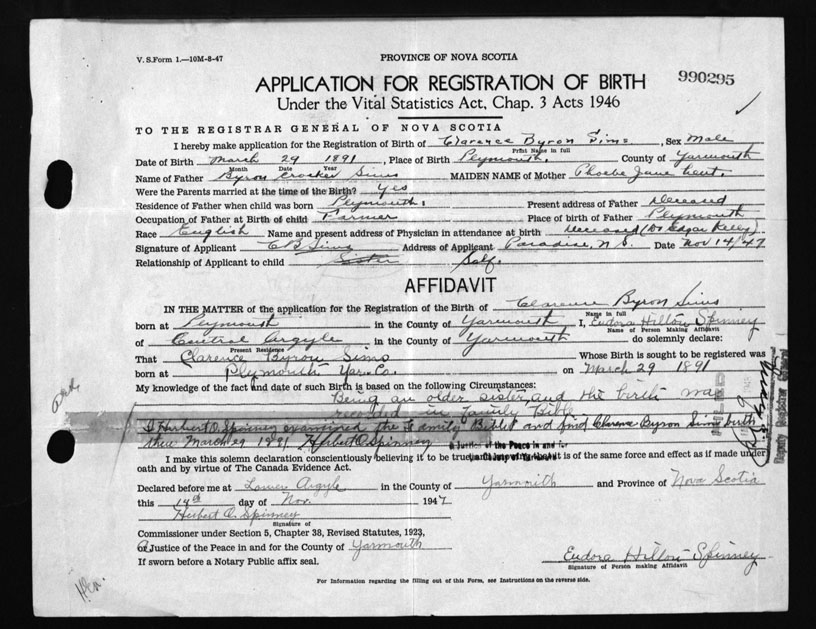 V. S. Form 1.—10M-8-47
PROVINCE OF NOVA SCOTIA
APPLICATION FOR REGISTRATION OF BIRTH
990295
Under the Vital Statistics Act, Chap. 3 Acts 1946
TO THE REGISTRAR GENERAL OF NOVA SCOTIA
I hereby make application for the Registration of Birth of Clarence Byron Sims, Sex Male
Print Name in full
Date of Birth March 29 1891, Place of Birth Plymouth, County of Yarmouth
Month Date Year
Name of Father Byron Crocker Sims MAIDEN NAME of Mother Phoebe Jane
Were the Parents married at the time of the Birth? Yes
Residence of Father when child was born Plymouth. Present address of Father Deceased
Occupation of Father at Birth of child Farmer Place of birth of Father Plymouth
Race English Name and present address of Physician in attendance at birth Deceased (Dr Edgar Kelley).
Signature of Applicant C B Sims Address of Applicant Paradise, N. S. Date Nov 14/47
Relationship of Applicant to child Sister Self.
AFFIDAVIT
IN THE MATTER of the application for the Registration of the Birth of Clarence Byron Sims
Name in full
born at Plymouth in the County of Yarmouth I, Eudora Hilton Spinney
Name of Person Making Affidavit
of Central Argyle in the County of Yarmouth do solemnly declare:
Present Residence
That Clarence Byron Sims Whose Birth is sought to be registered was
born at Plymouth Yar. Co. on March 29 1891
My knowledge of the fact and date of such Birth is based on the following Circumstances:
Being an older sister and the birth was
recorded in family Bible
I Herbert O. Spinney examined the Family Bible and find Clarence Byron Sims birth
thus March 29 1891 Herbert O. Spinney
a Justice of the Peace in and for
the County of Yarmouth
I make this solemn declaration conscientiously believing it to be true and that it is of the same force and effect as if made under
oath and by virtue of The Canada Evidence Act.
Declared before me at Lower Argyle in the County of Yarmouth and Province of Nova Scotia
this 14th day of Nov. 1947
Herbert O. Spinney
Signature of
Commissioner under Section 5, Chapter 38, Revised Statutes, 1923,
or
a Justice of the Peace in and for the County of Yarmouth
If sworn before a Notary Public affix seal.
Eudora Hilton Spinney
Signature of Person making Affidavit
For Information regarding the filling out of this Form, see Instructions on the reverse side.
FILED
Deputy Registrar General